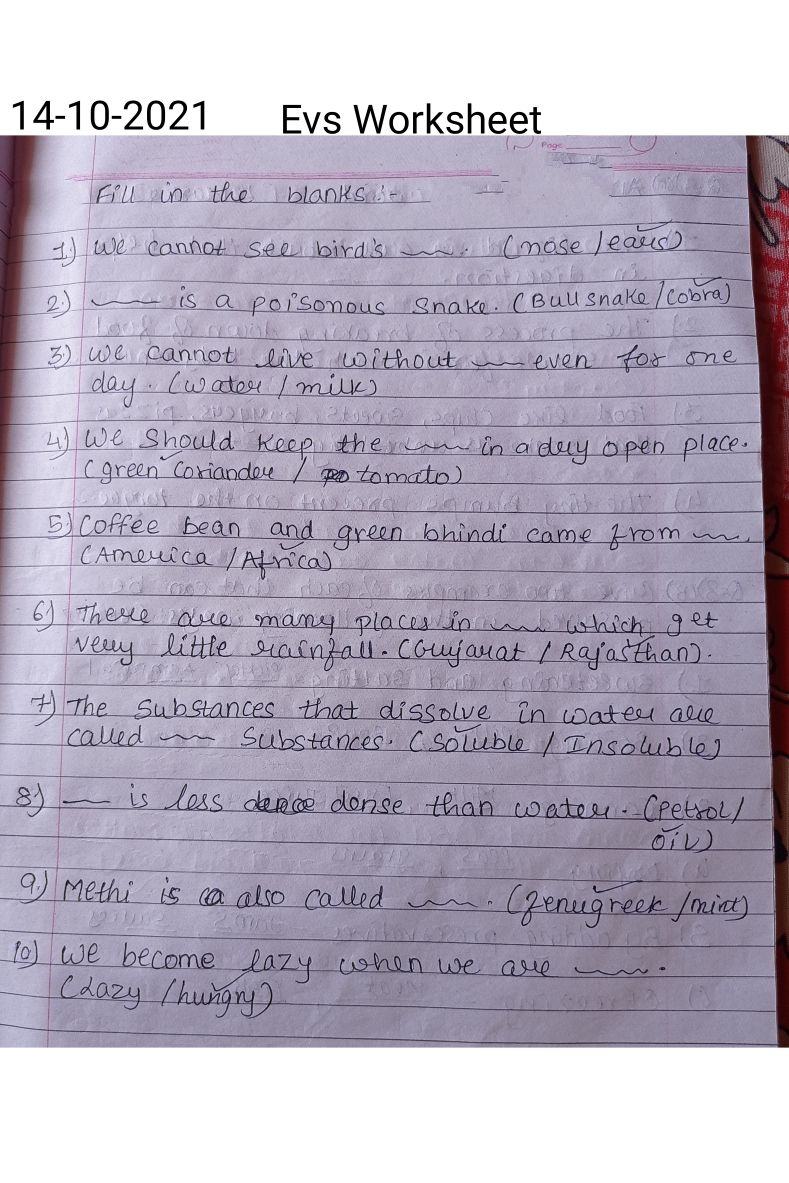 14-10-2021 Evs Worksheet
Page
Fill in the blanks :-
1) We cannot see bird's ___. (nose / ears)
2) ___ is a poisonous snake. (Bull snake / Cobra)
3) We cannot live without ___ even for one
day. (water / milk)
4) We should keep the ___ in a dry open place.
(green coriander / tomato)
5) Coffee bean and green bhindi came from ___.
(America / Africa)
6) There are many places in ___ which get
very little rainfall. (Gujarat / Rajasthan).
7) The substances that dissolve in water are
called ___ substances. (soluble / Insoluble)
8) ___ is less dense than water. (Petrol /
oil)
9) Methi is also called ___. (fenugreek / mint)
10) We become lazy when we are ___.
(Lazy / hungry)